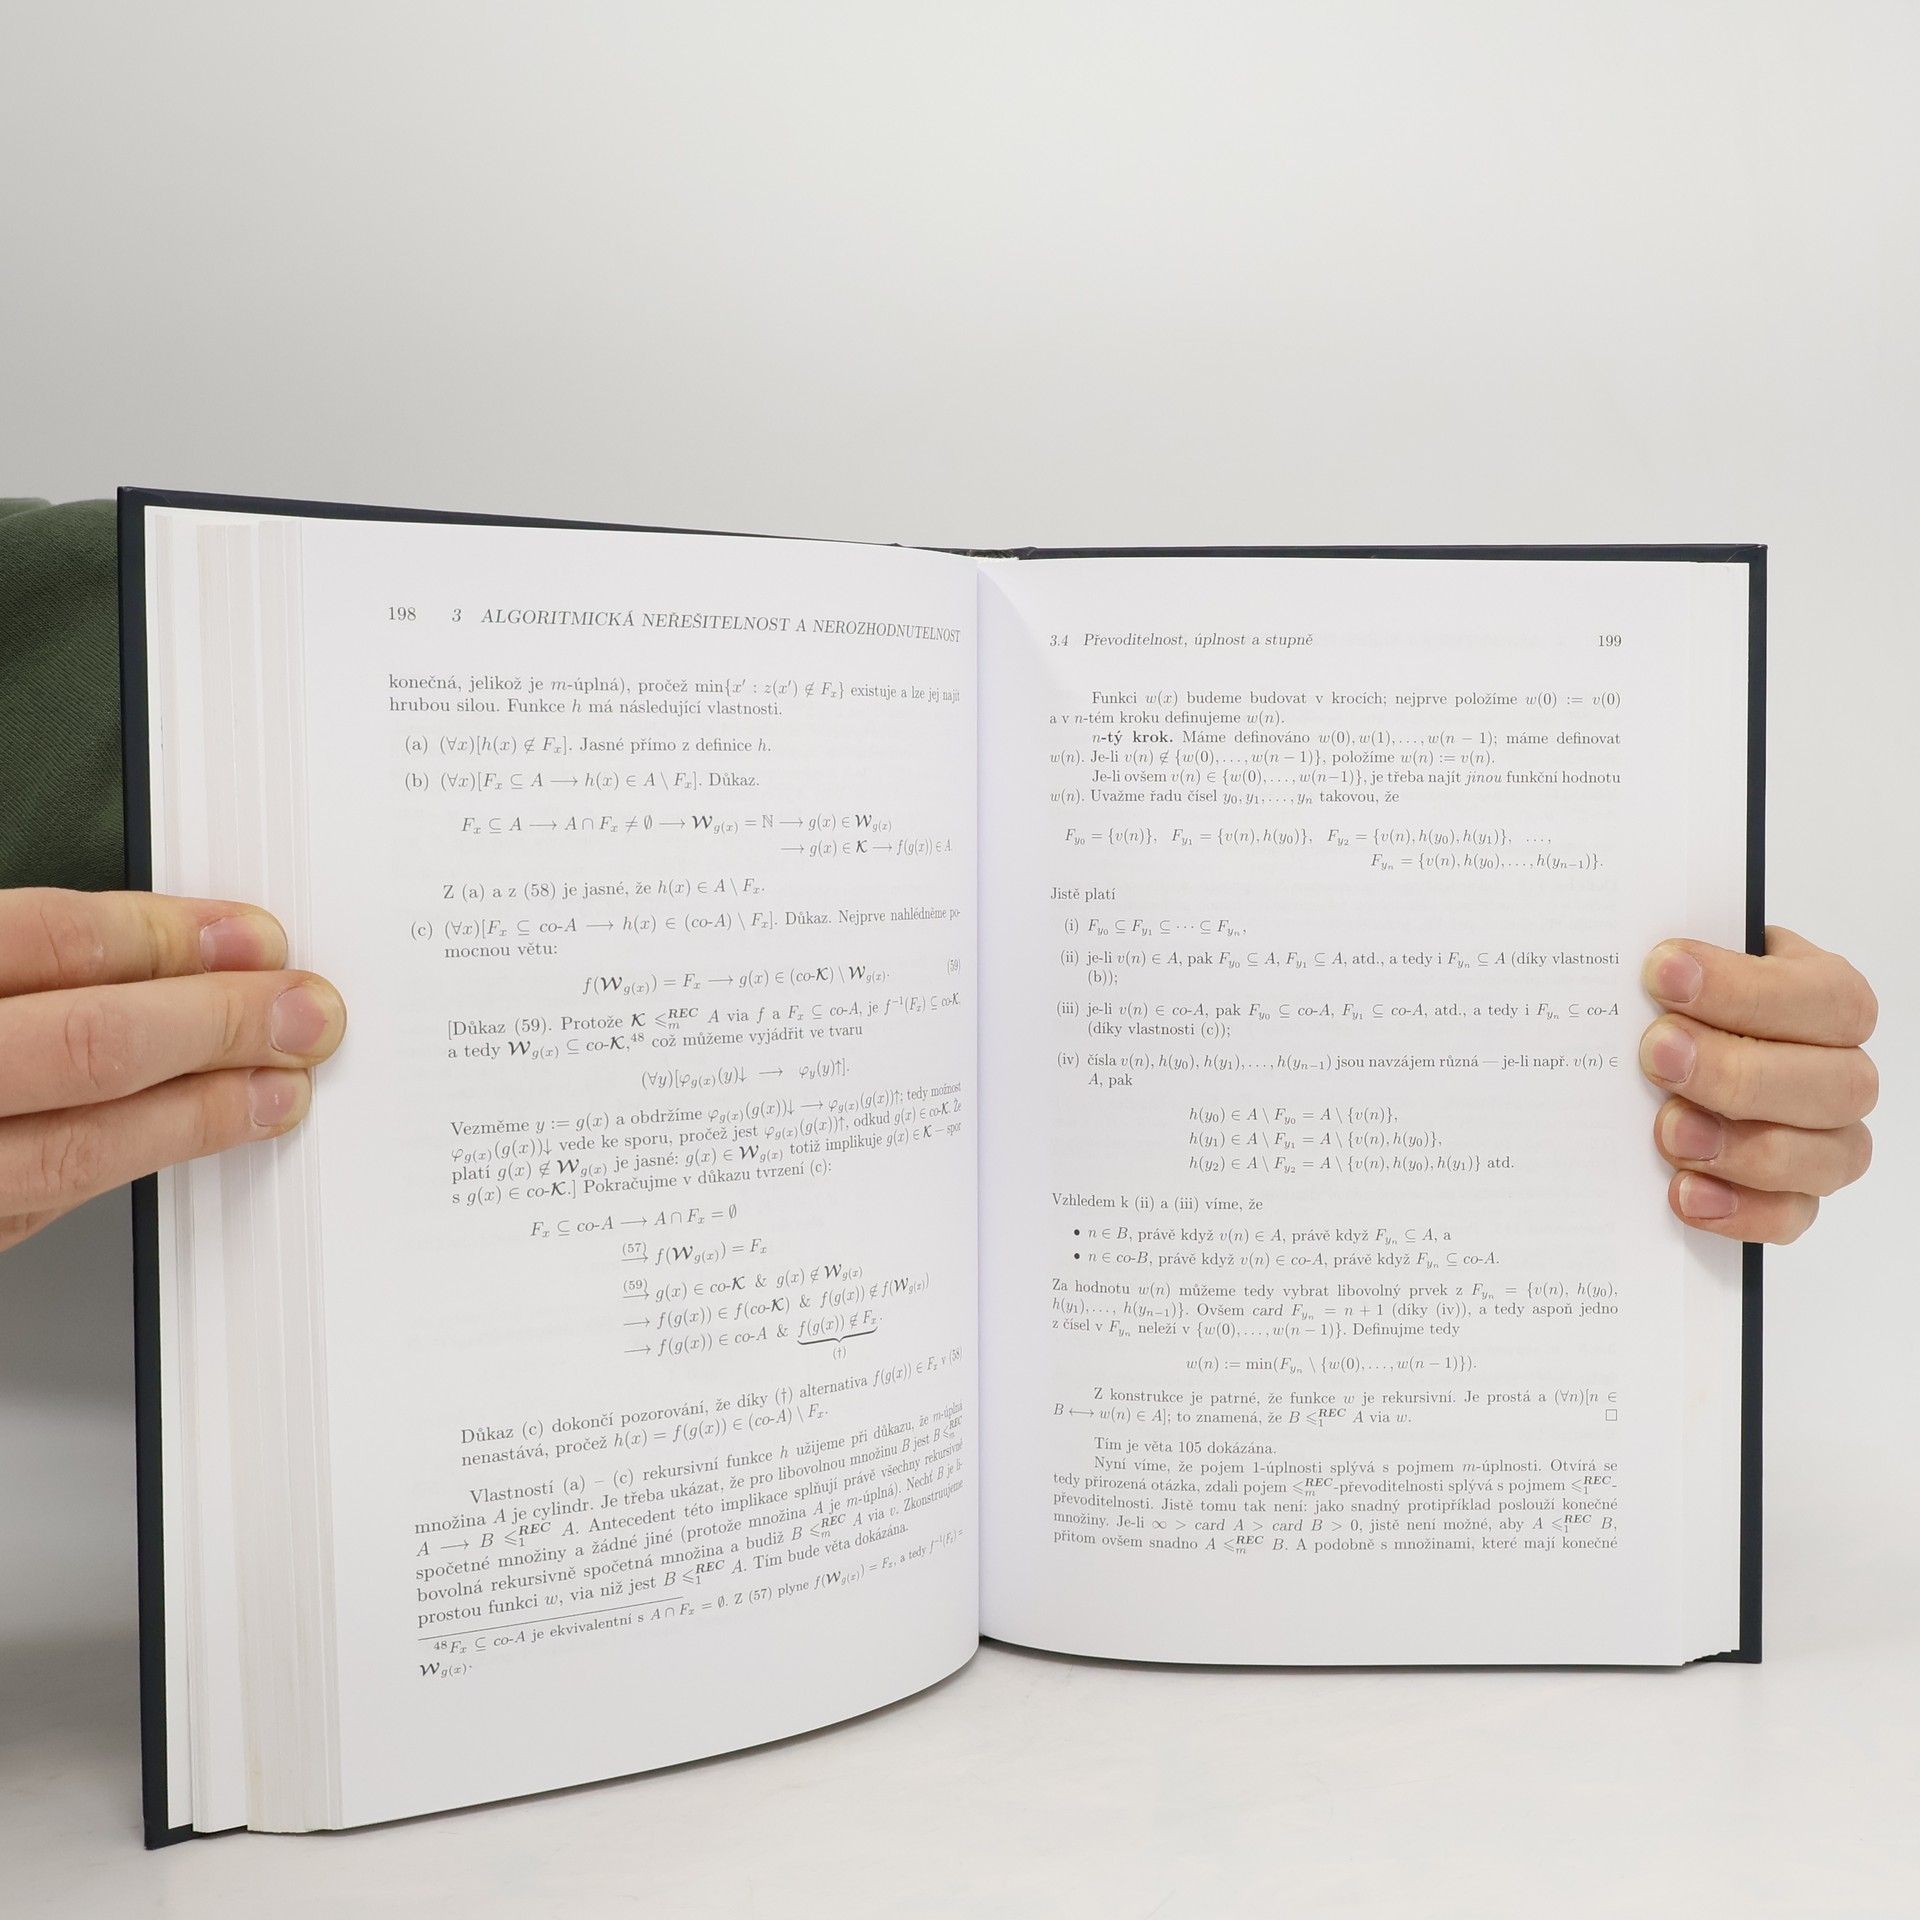 198 3 ALGORITMICKÁ NEŘEŠITELNOST A NEROZHODNUTELNOST
konečná, jelikož je m-úplná), pročež min{x′ : z(x′) ∉ Fₓ} existuje a lze jej najít
hrubou silou. Funkce h má následující vlastnosti.
(a) (∀x)[h(x) ∉ Fₓ]. Jasné přímo z definice h.
(b) (∀x)[Fₓ ⊆ A ⟶ h(x) ∈ A \ Fₓ]. Důkaz.
Fₓ ⊆ A ⟶ A ∩ Fₓ ≠ ∅ ⟶ 𝓦_{g(x)} = ℕ ⟶ g(x) ∈ 𝓦_{g(x)}
⟶ g(x) ∈ 𝓚 ⟶ f(g(x)) ∈ A.
Z (a) a z (58) je jasné, že h(x) ∈ A \ Fₓ.
(c) (∀x)[Fₓ ⊆ co-A ⟶ h(x) ∈ (co-A) \ Fₓ]. Důkaz. Nejprve nahlédněme po-
mocnou větu:
f(𝓦_{g(x)}) = Fₓ ⟶ g(x) ∈ (co-𝓚) \ 𝓦_{g(x)}. (59)
[Důkaz (59). Protože 𝓚 ⩽ₘ^{REC} A via f a Fₓ ⊆ co-A, je f⁻¹(Fₓ) ⊆ co-𝓚,
a tedy 𝓦_{g(x)} ⊆ co-𝓚,⁴⁸ což můžeme vyjádřit ve tvaru
(∀y)[φ_{g(x)}(y)↓ ⟶ φ_y(y)↑].
Vezměme y := g(x) a obdržíme φ_{g(x)}(g(x))↓ ⟶ φ_{g(x)}(g(x))↑; tedy možnost
φ_{g(x)}(g(x))↓ vede ke sporu, pročež jest φ_{g(x)}(g(x))↑, odkud g(x) ∈ co-𝓚. Že
platí g(x) ∉ 𝓦_{g(x)} je jasné: g(x) ∈ 𝓦_{g(x)} totiž implikuje g(x) ∈ 𝓚 – spor
s g(x) ∈ co-𝓚.] Pokračujme v důkazu tvrzení (c):
Fₓ ⊆ co-A ⟶ A ∩ Fₓ = ∅
(57)⟶ f(𝓦_{g(x)}) = Fₓ
(59)⟶ g(x) ∈ co-𝓚 & g(x) ∉ 𝓦_{g(x)}
⟶ f(g(x)) ∈ f(co-𝓚) & f(g(x)) ∉ f(𝓦_{g(x)})
⟶ f(g(x)) ∈ co-A & f(g(x)) ∉ Fₓ.
(†)
Důkaz (c) dokončí pozorování, že díky (†) alternativa f(g(x)) ∈ Fₓ v (58)
nenastává, pročež h(x) = f(g(x)) ∈ (co-A) \ Fₓ.
Vlastností (a) – (c) rekursivní funkce h užijeme při důkazu, že m-úplná
množina A je cylindr. Je třeba ukázat, že pro libovolnou množinu B jest B ⩽ₘ^{REC}
A ⟶ B ⩽₁^{REC} A. Antecedent této implikace splňují právě všechny rekursivně
spočetné množiny a žádné jiné (protože množina A je m-úplná). Nechť B je li-
bovolná rekursivně spočetná množina a budiž B ⩽ₘ^{REC} A via v. Zkonstruujeme
prostou funkci w, via niž jest B ⩽₁^{REC} A. Tím bude věta dokázána.
⁴⁸Fₓ ⊆ co-A je ekvivalentní s A ∩ Fₓ = ∅. Z (57) plyne f(𝓦_{g(x)}) = Fₓ, a tedy f⁻¹(Fₓ) =
𝓦_{g(x)}.
3.4 Převoditelnost, úplnost a stupně 199
Funkci w(x) budeme budovat v krocích; nejprve položíme w(0) := v(0)
a v n-tém kroku definujeme w(n).
n-tý krok. Máme definováno w(0), w(1), . . . , w(n − 1); máme definovat
w(n). Je-li v(n) ∉ {w(0), . . . , w(n − 1)}, položíme w(n) := v(n).
Je-li ovšem v(n) ∈ {w(0), . . . , w(n−1)}, je třeba najít jinou funkční hodnotu
w(n). Uvažme řadu čísel y₀, y₁, . . . , yₙ takovou, že
F_{y₀} = {v(n)}, F_{y₁} = {v(n), h(y₀)}, F_{y₂} = {v(n), h(y₀), h(y₁)}, . . . ,
F_{yₙ} = {v(n), h(y₀), . . . , h(yₙ₋₁)}.
Jistě platí
(i) F_{y₀} ⊆ F_{y₁} ⊆ · · · ⊆ F_{yₙ},
(ii) je-li v(n) ∈ A, pak F_{y₀} ⊆ A, F_{y₁} ⊆ A, atd., a tedy i F_{yₙ} ⊆ A (díky vlastnosti
(b));
(iii) je-li v(n) ∈ co-A, pak F_{y₀} ⊆ co-A, F_{y₁} ⊆ co-A, atd., a tedy i F_{yₙ} ⊆ co-A
(díky vlastnosti (c));
(iv) čísla v(n), h(y₀), h(y₁), . . . , h(yₙ₋₁) jsou navzájem různá — je-li např. v(n) ∈
A, pak
h(y₀) ∈ A \ F_{y₀} = A \ {v(n)},
h(y₁) ∈ A \ F_{y₁} = A \ {v(n), h(y₀)},
h(y₂) ∈ A \ F_{y₂} = A \ {v(n), h(y₀), h(y₁)} atd.
Vzhledem k (ii) a (iii) víme, že
• n ∈ B, právě když v(n) ∈ A, právě když F_{yₙ} ⊆ A, a
• n ∈ co-B, právě když v(n) ∈ co-A, právě když F_{yₙ} ⊆ co-A.
Za hodnotu w(n) můžeme tedy vybrat libovolný prvek z F_{yₙ} = {v(n), h(y₀),
h(y₁), . . . , h(yₙ₋₁)}. Ovšem card F_{yₙ} = n + 1 (díky (iv)), a tedy aspoň jedno
z čísel v F_{yₙ} neleží v {w(0), . . . , w(n − 1)}. Definujme tedy
w(n) := min(F_{yₙ} \ {w(0), . . . , w(n − 1)}).
Z konstrukce je patrné, že funkce w je rekursivní. Je prostá a (∀n)[n ∈
B ⟷ w(n) ∈ A]; to znamená, že B ⩽₁^{REC} A via w. □
Tím je věta 105 dokázána.
Nyní víme, že pojem 1-úplnosti splývá s pojmem m-úplnosti. Otvírá se
tedy přirozená otázka, zdali pojem ⩽ₘ^{REC}-převoditelnosti splývá s pojmem ⩽₁^{REC}-
převoditelnosti. Jistě tomu tak není: jako snadný protipříklad poslouží konečné
množiny. Je-li ∞ > card A > card B > 0, jistě není možné, aby A ⩽₁^{REC} B,
přitom ovšem snadno A ⩽ₘ^{REC} B. A podobně s množinami, které mají konečné